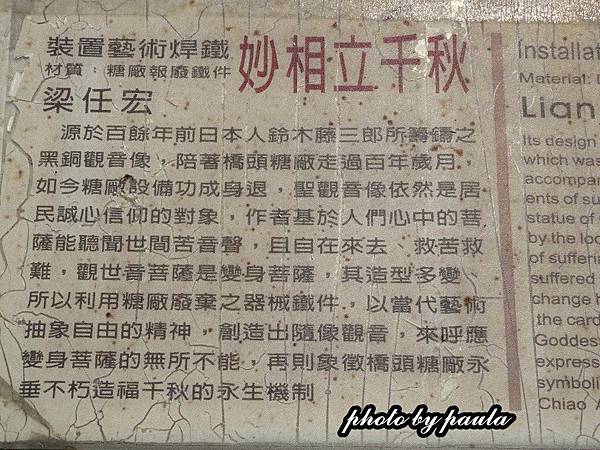 裝置藝術焊鐵
材質：糖廠報廢鐵件
妙相立千秋
梁任宏
源於百餘年前日本人鈴木藤三郎所籌鑄之
黑銅觀音像，陪著橋頭糖廠走過百年歲月，
如今糖廠設備功成身退，聖觀音像依然是居
民誠心信仰的對象，作者基於人們心中的菩
薩能聽聞世間苦音聲，且自在來去、救苦救
難，觀世音菩薩是變身菩薩，其造型多變、
所以利用糖廠廢棄之器械鐵件，以當代藝術
抽象自由的精神，創造出隨像觀音，來呼應
變身菩薩的無所不能，再則象徵橋頭糖廠永
垂不朽造福千秋的永生機制
Installat
Material:
Lian
Its design
which was
accompan
ents of su
statue of
by the loc
of sufferin
suffered
change h
the card
Goddess
express
symboli
Chiao A
photo by paula